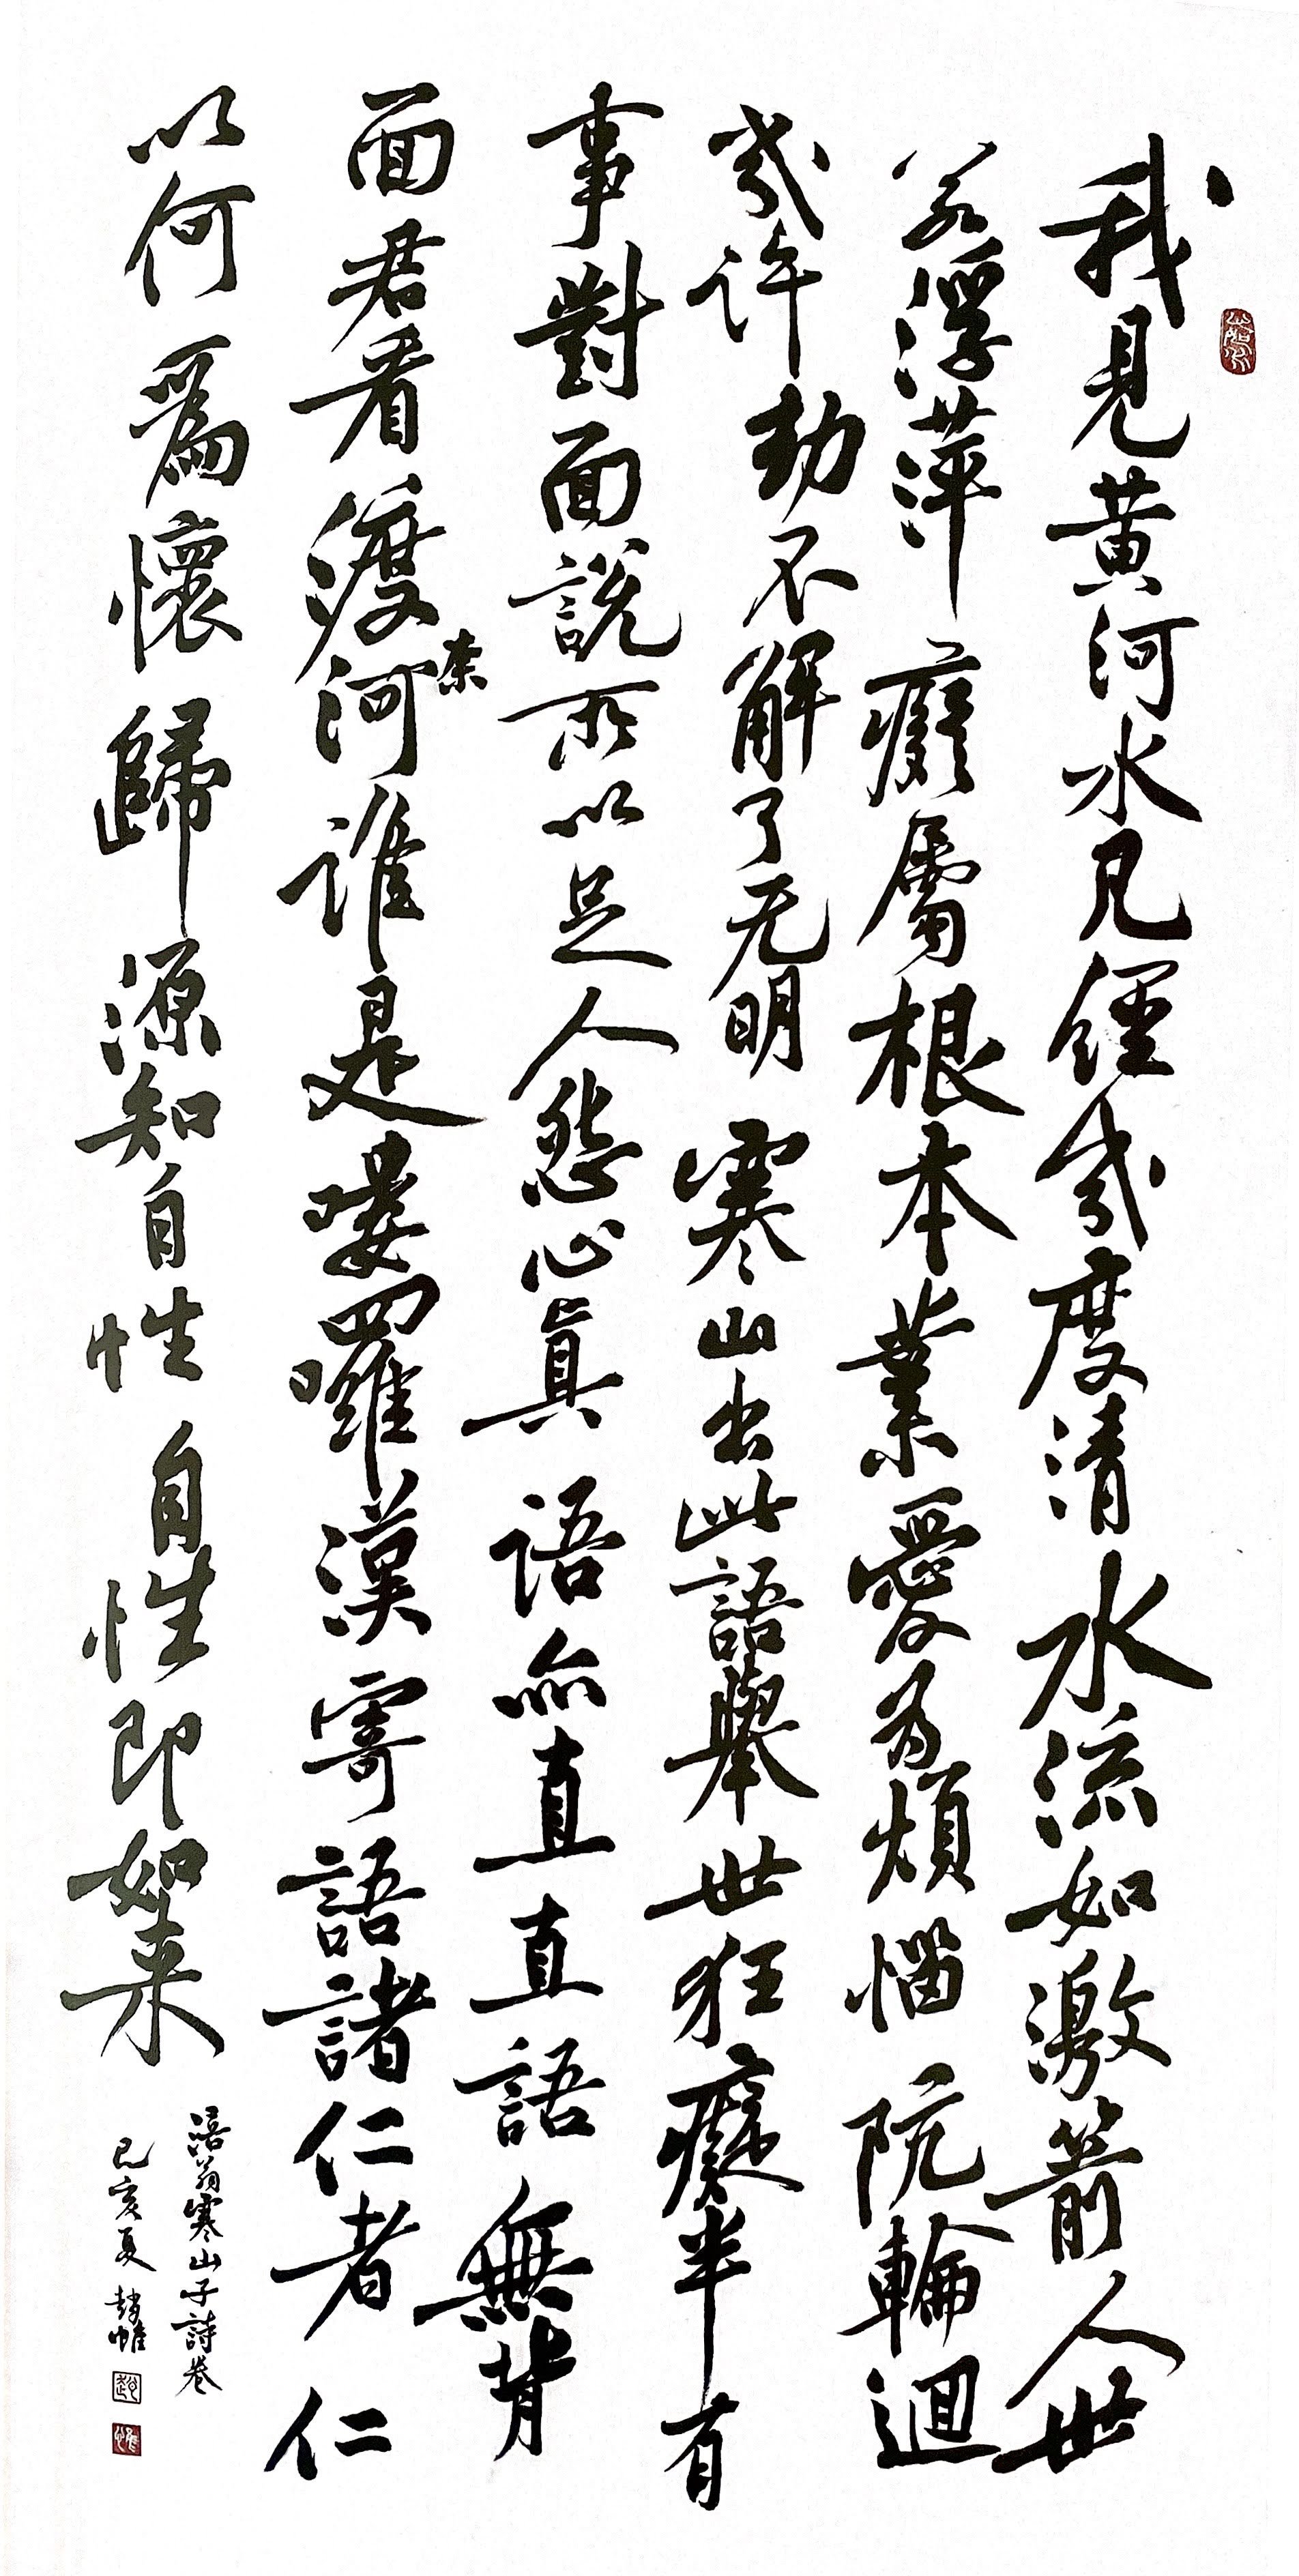 我見黄河水凡經㡬度清水流如激箭人世
若浮萍癡屬根本業愛为煩惱阬輪迴
㡬許劫不解了无明寒山出此語舉世狂癡半有
事對面說所以足人怨心真語亦直直語無背
面君看渡柰河誰是嘍囉漢寄語諸仁者仁
以何爲懷歸源知自性自性即如来
涪翁寒山子詩卷
己亥夏 趙帷